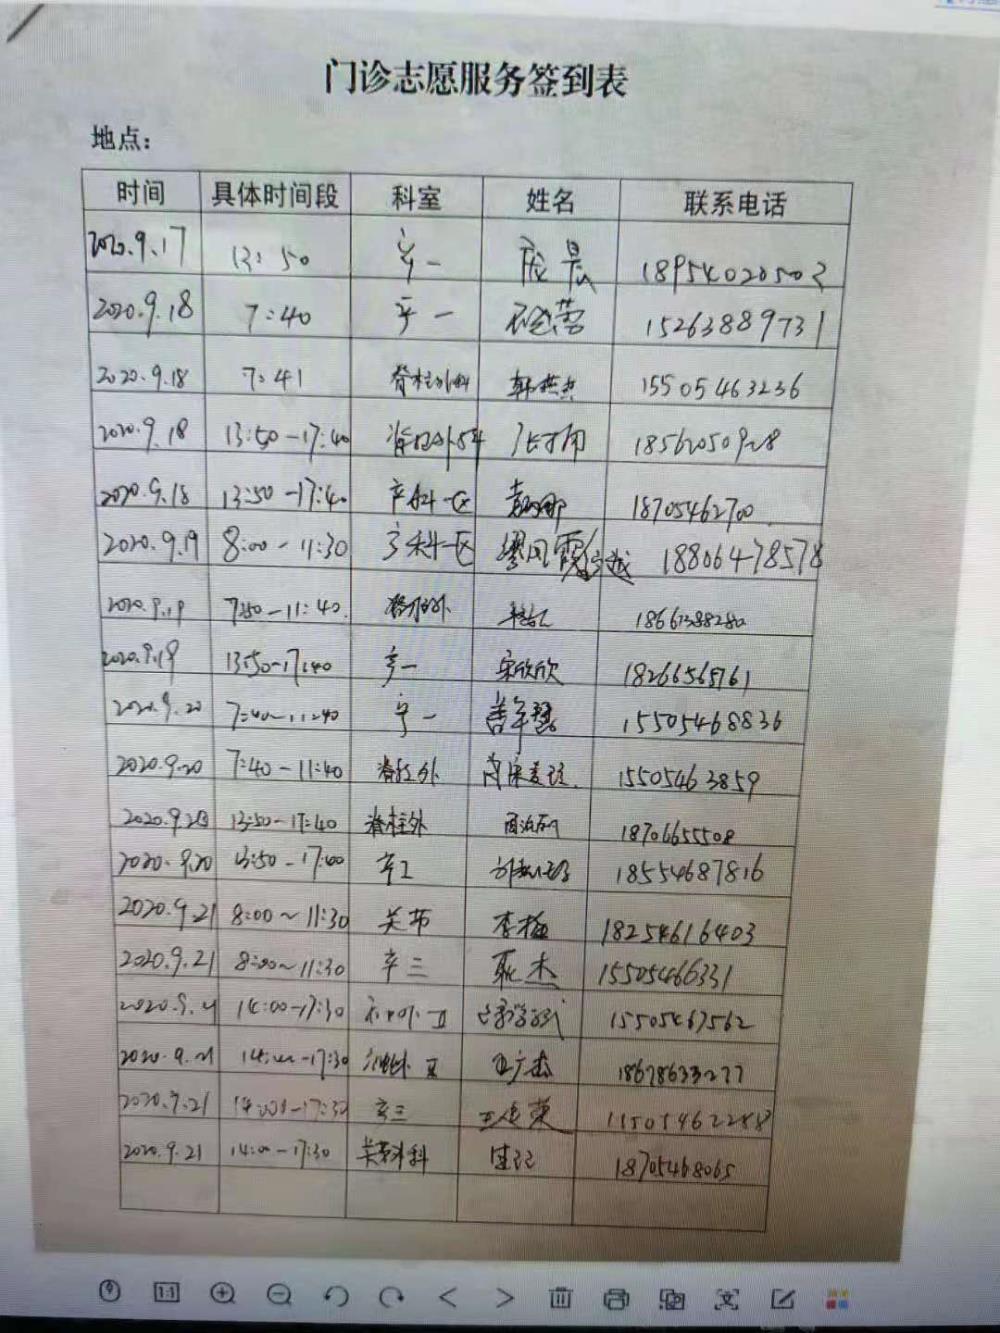 门诊志愿服务签到表
地点：
时间 具体时间段 科室 姓名 联系电话
2020.9.17 13:50 产一 晨 18954020503
2020.9.18 7:40 产一 15263889731
2020.9.18 7:41 脊柱外科 韩燕杰 15505463236
2020.9.18 13:50-17:40 脊柱外科 18562050928
2020.9.18 13:50-17:40 产科一区 娜 18705462700
2020.9.19 8:00-11:30 产科一区 缪凤霞 18806478578
2020.9.19 7:50-11:40. 脊柱外
2020.9.19 13:50-17:40 产一 宋欣欣 18266565761
2020.9.20 7:40-11:40 产一 15505468836
2020.9.20 7:40-11:40 脊柱外 15505463859
2020.9.20 13:50-17:40 脊柱外 18706655508
2020.9.20 13:50-17:00 产 18554687816
2020.9.21 8:00~11:30 关节 李梅 18254616403
2020.9.21 8:00~11:30 产三 耿杰 15505466331
2020.9.21 14:00-17:30 15505467562
2020.9.21 14:00-17:30 广杰 18678633277
2020.9.21 14:00-17:30 产三 王 英 11505462288
2020.9.21 14:00-17:30 关节外科 18705468065